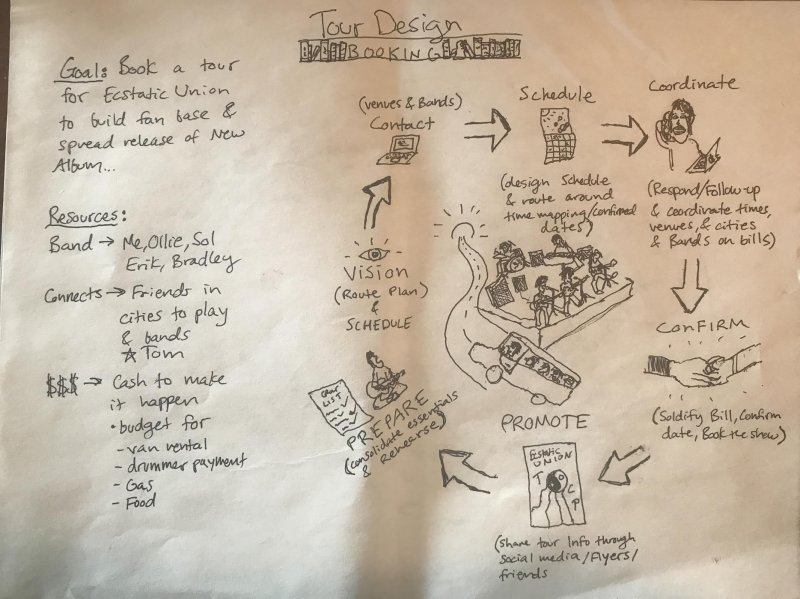 Tour Design
BOOKING
Goal: Book a tour
for Ecstatic Union
to build fan base &
spread release of New
Album...
Resources:
Band → Me, Ollie, Sol
Erik, Bradley
Connects → Friends in
cities to play
& bands
☆ Tom
$$$ → Cash to make
it happen
• budget for
- van rental
- drummer payment
- Gas
- Food
(venues & Bands)
Contact
Schedule
(design schedule
& route around
time mapping/confirmed
dates)
Coordinate
(Respond/Follow-up
& coordinate times,
venues, & cities
& Bands on bills)
CONFIRM
(Soldify Bill, Confirm
date, Book the show)
PROMOTE
ECSTATIC
UNION
T
C
P
(share tour Info through
social media/Flyers/
friends
LIST
PREPARE
(consolidate essentials
& Rehearse)
Vision
(Route Plan)
&
SCHEDULE